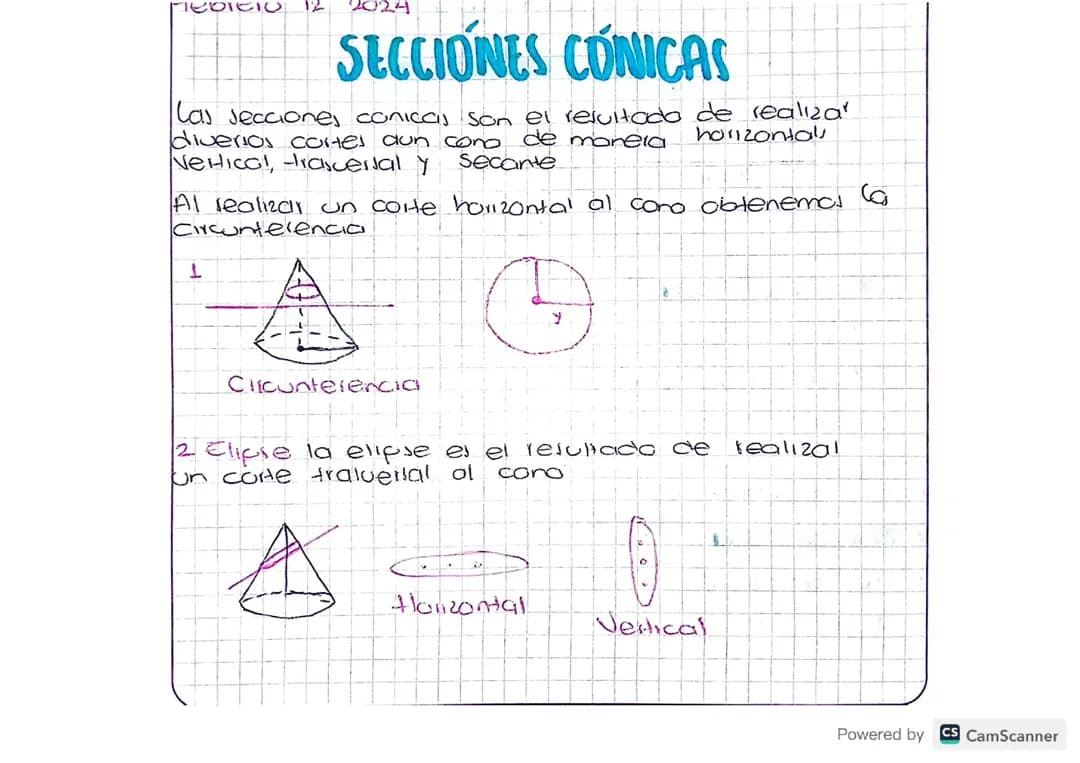 12 2024
SECCIÓNES CÓNICAS
Las secciones conicas son el resultado de realizar
diversos cortes aun cono de manera horizontal
vertical, trascersal y secante
Al realizar un corte horizontal al cono obtenemos la
circunferencia
1
y
Circunferencia
2 Elipse la elipse es el resultado de realizal
un corte trasversal al cono
Horizontal
Vertical
Powered by CS CamScanner